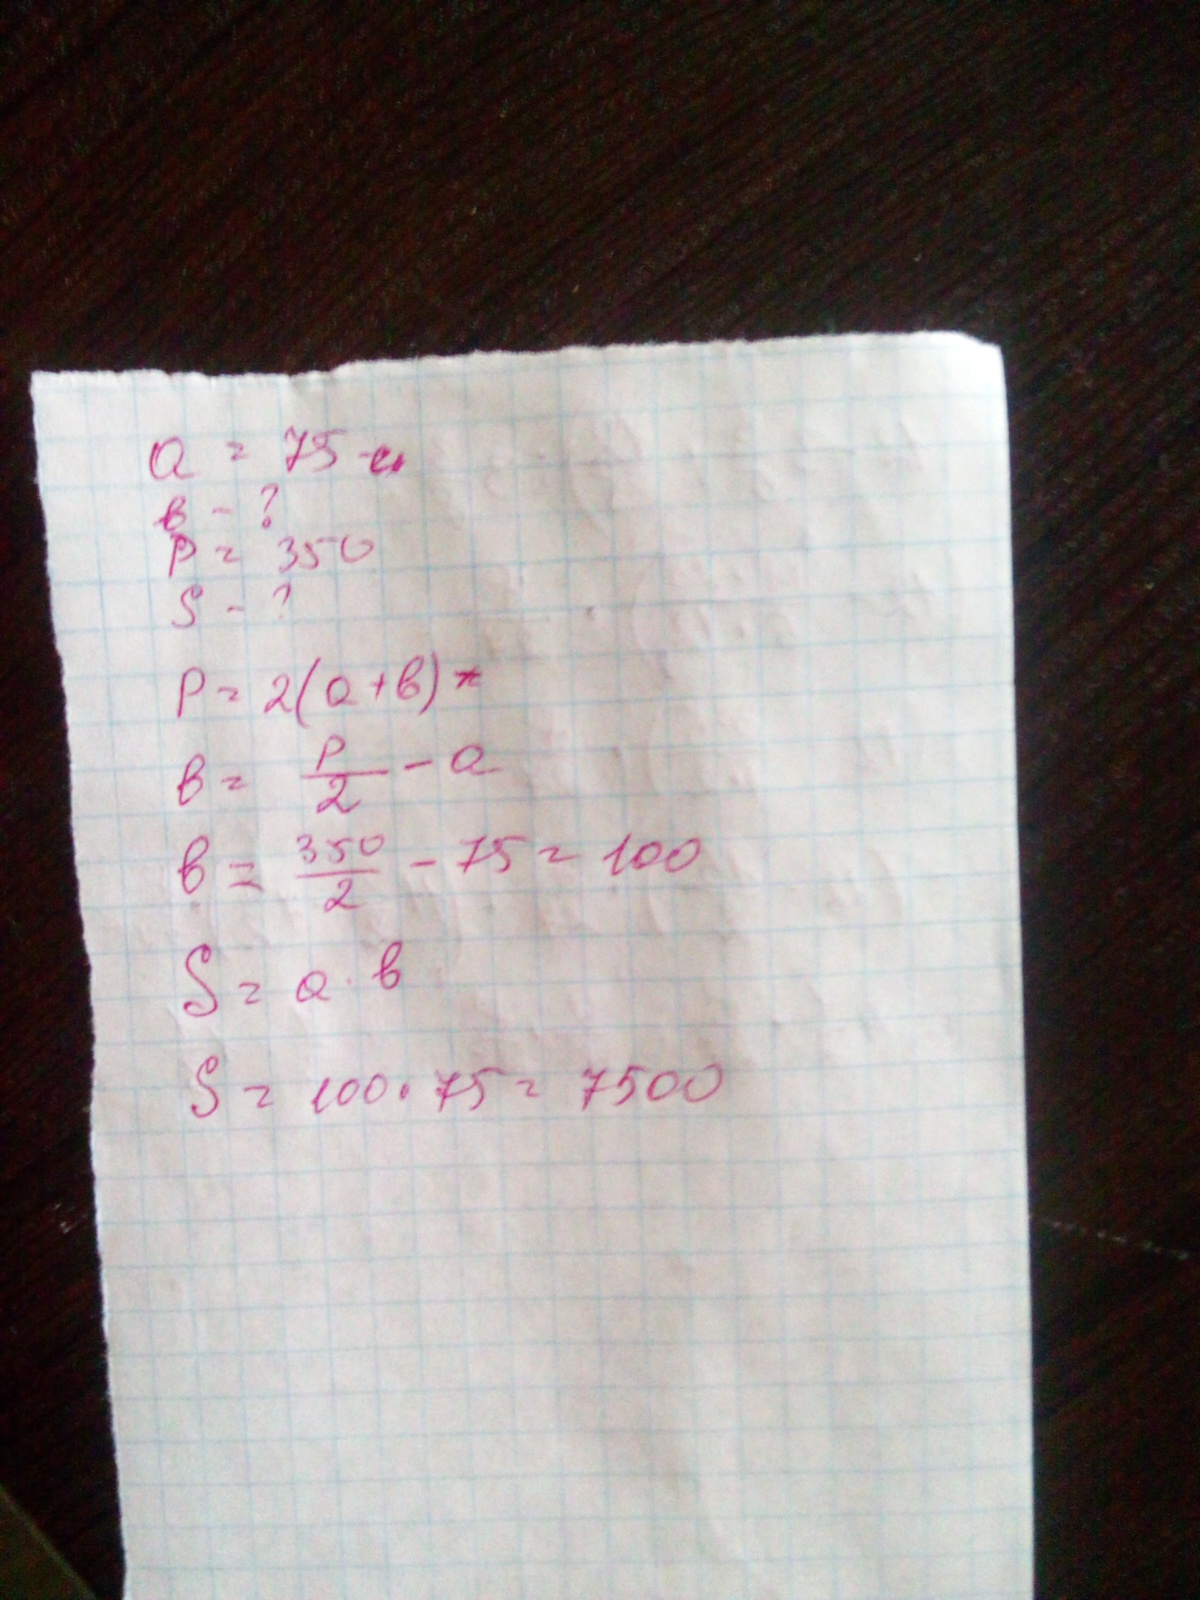 a = 75
в - ?
P = 350
S - ?
P = 2(a+в)
в = P/2 - a
в = 350/2 - 75 = 100
S = a · в
S = 100 · 75 = 7500